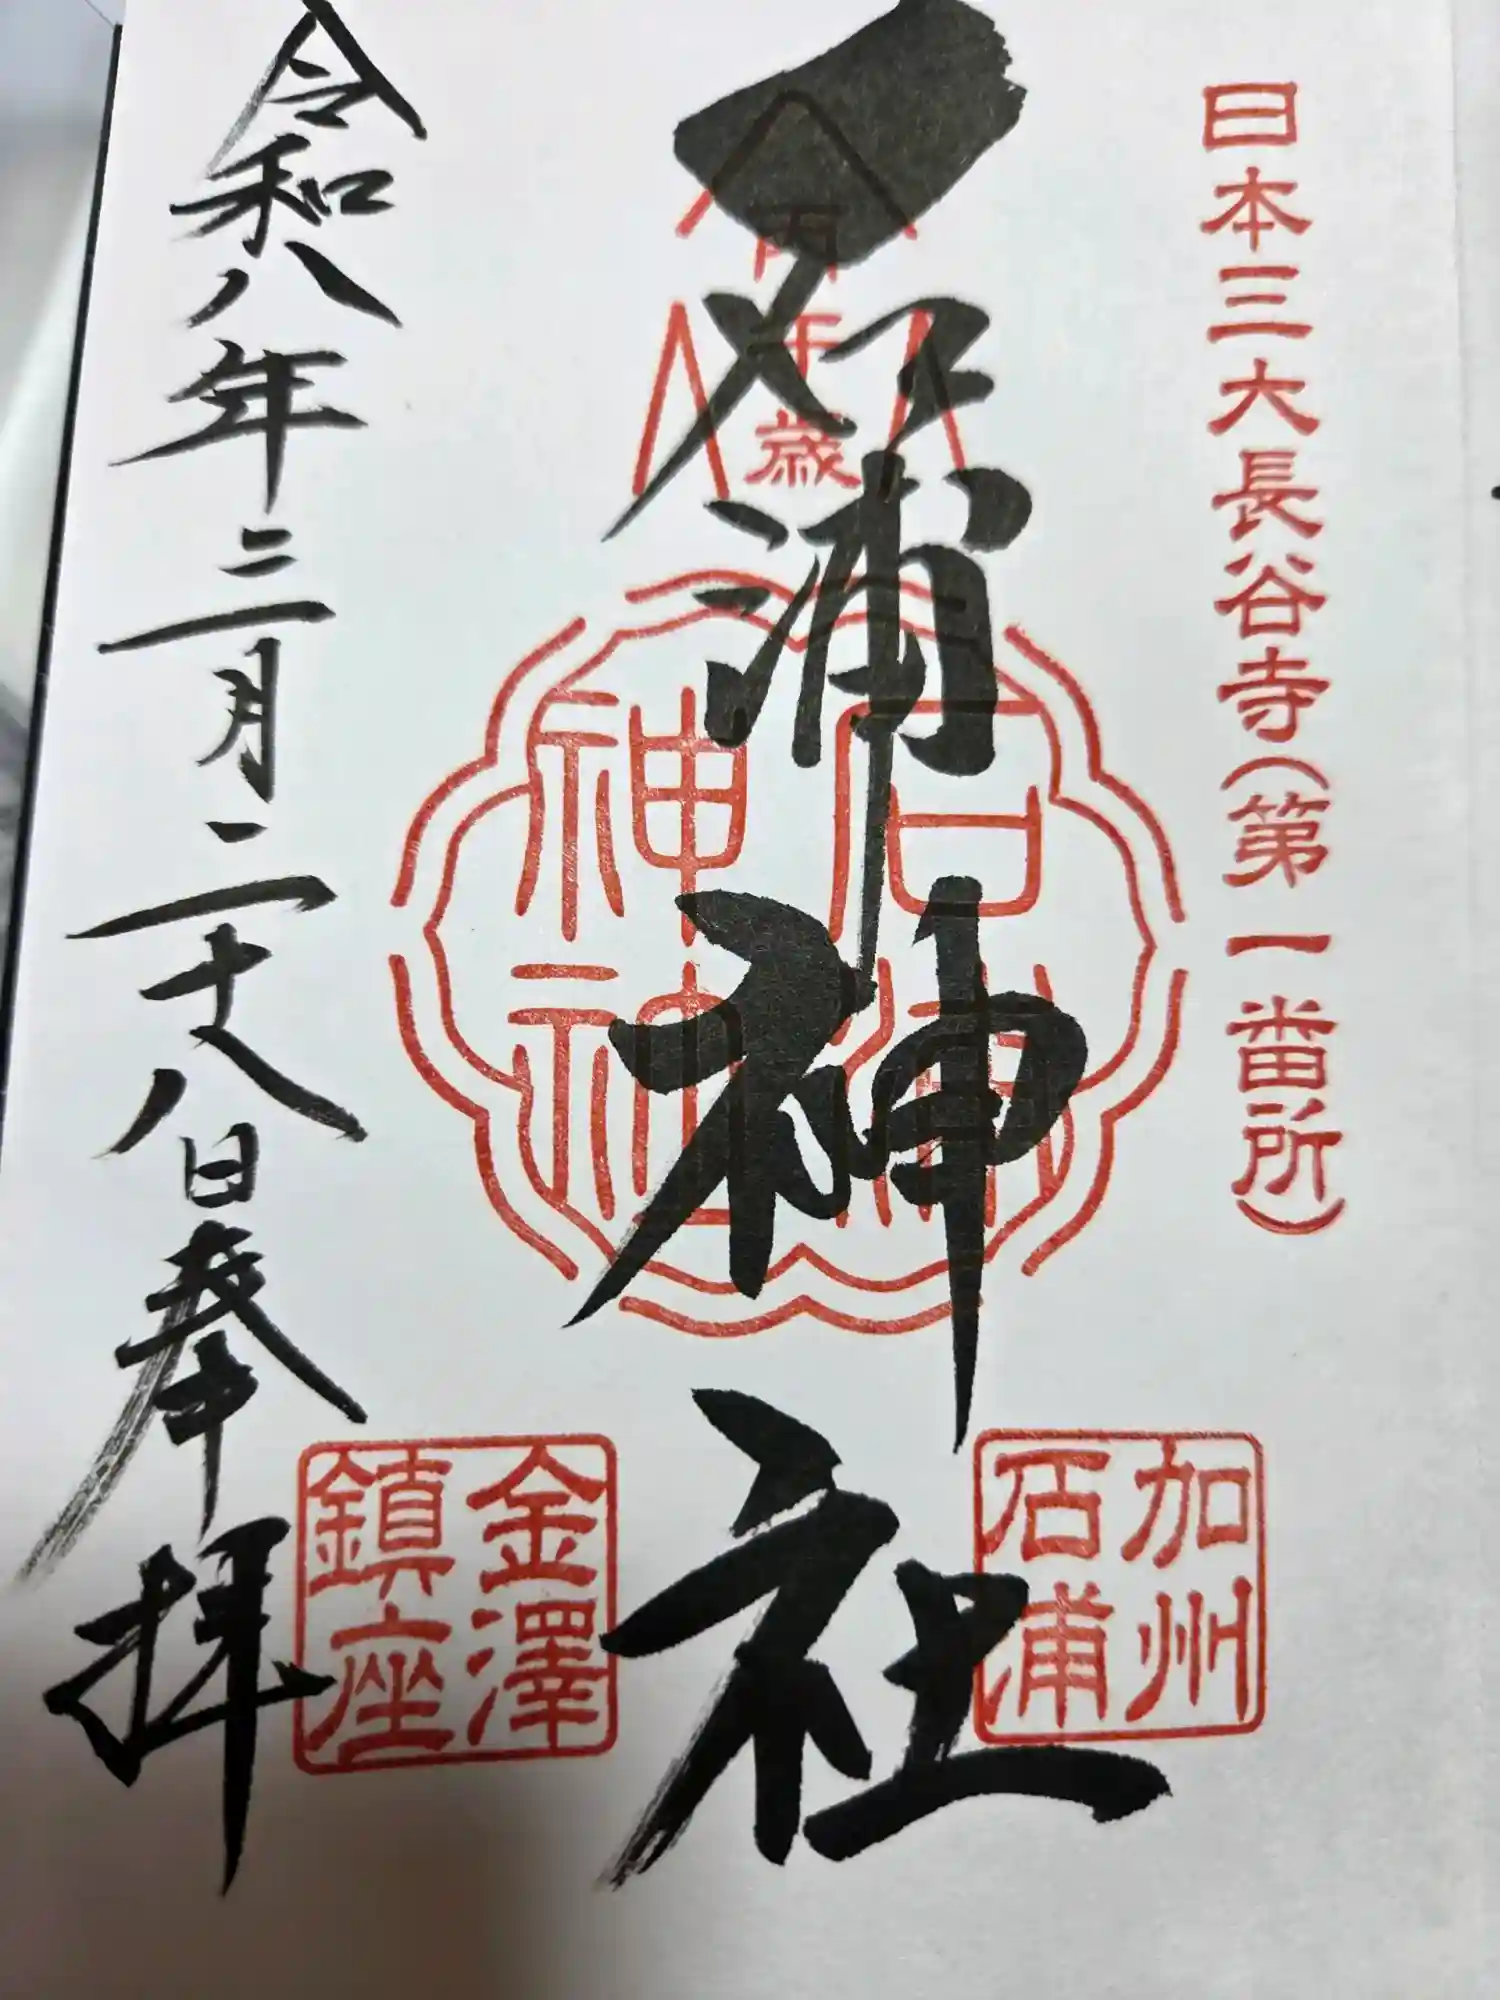 日本三大長谷寺(第一番所)
石浦神社
千歳
石浦
神社
加州
石浦
金澤
鎮座
令和八年三月二十八日奉拝